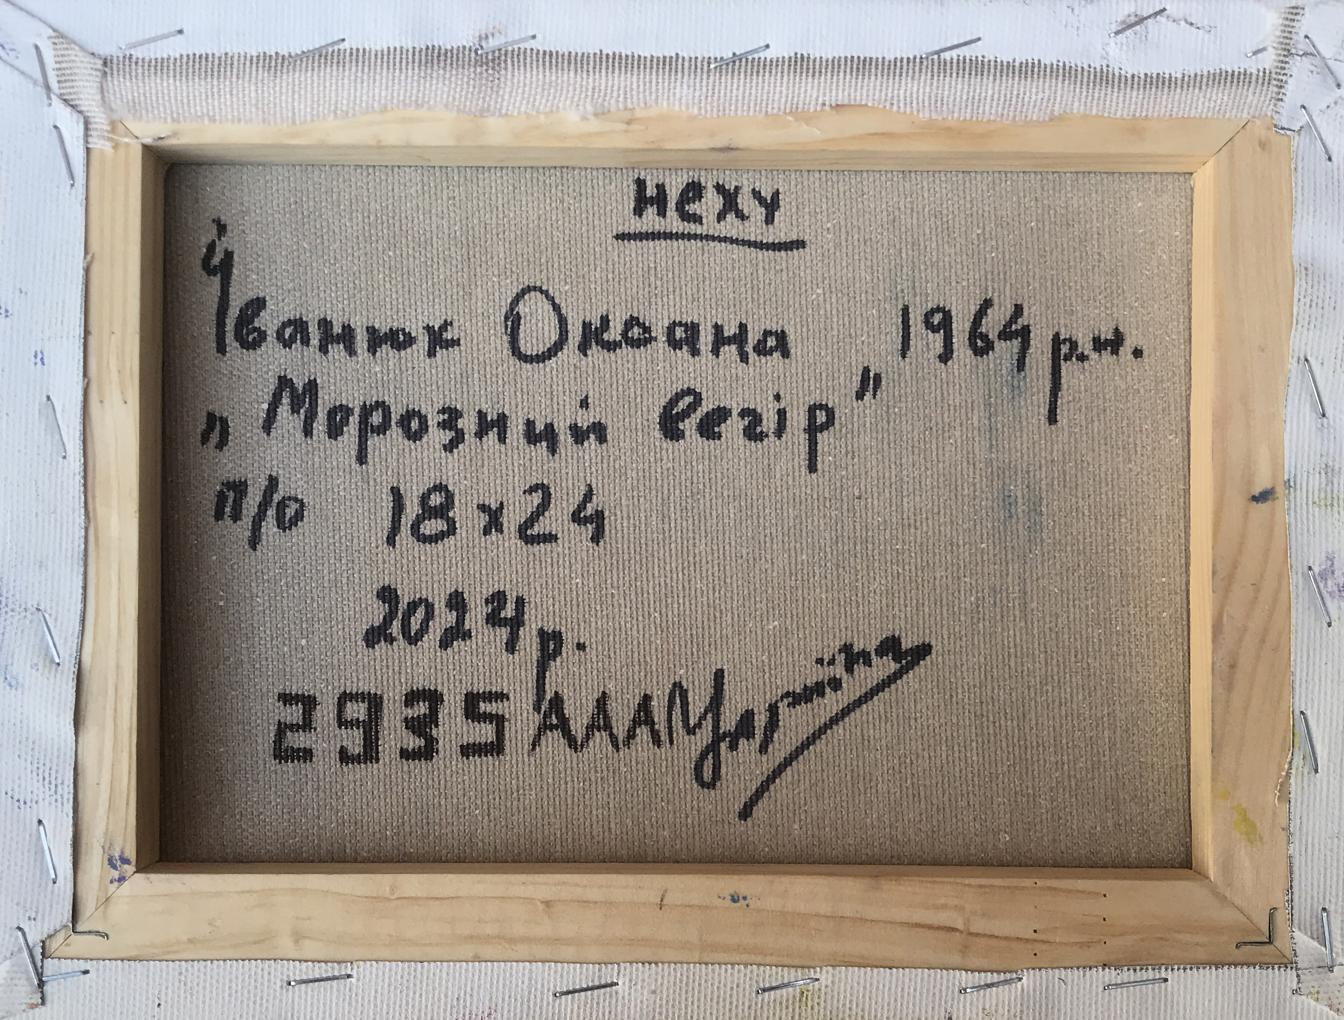 НСХУ
Іванюк Оксана 1964 р.н.
„Морозний вечір"
п/о 18х24
2024р.
2935 ААА Україна